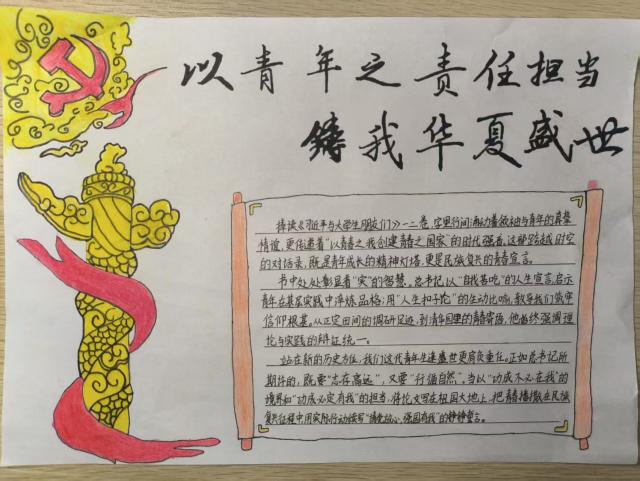 以青年之责任担当
铸我华夏盛世
捧读《习近平与大学生朋友们》一二卷,字里行间涌动着领袖与青年的真挚
情谊,更传递着“以青春之我创建青春之国家”的时代强音。这部跨越时空
的对话录,既是青年成长的精神灯塔,更是民族复兴的青春宣言。
书中处处彰显着“实”的智慧。总书记以“自找苦吃”的人生宣言,启示
青年在基层实践中淬炼品格;用“人生扣子论”的生动比喻,教导我们筑牢
信仰根基。从正定田间的调研足迹,到清华园里的青春寄语,他始终强调理
论与实践的辩证统一。
站在新的历史方位,我们这代青年生逢盛世更肩负重任。正如总书记所
期待的,既要“志存高远”,又要“行循自然”,当以“功成不必在我”的
境界和“功成必定有我”的担当,将论文写在祖国大地上,把青春播撒在民族
复兴征程中,用实际行动续写“请党放心,强国有我”的铮铮誓言。